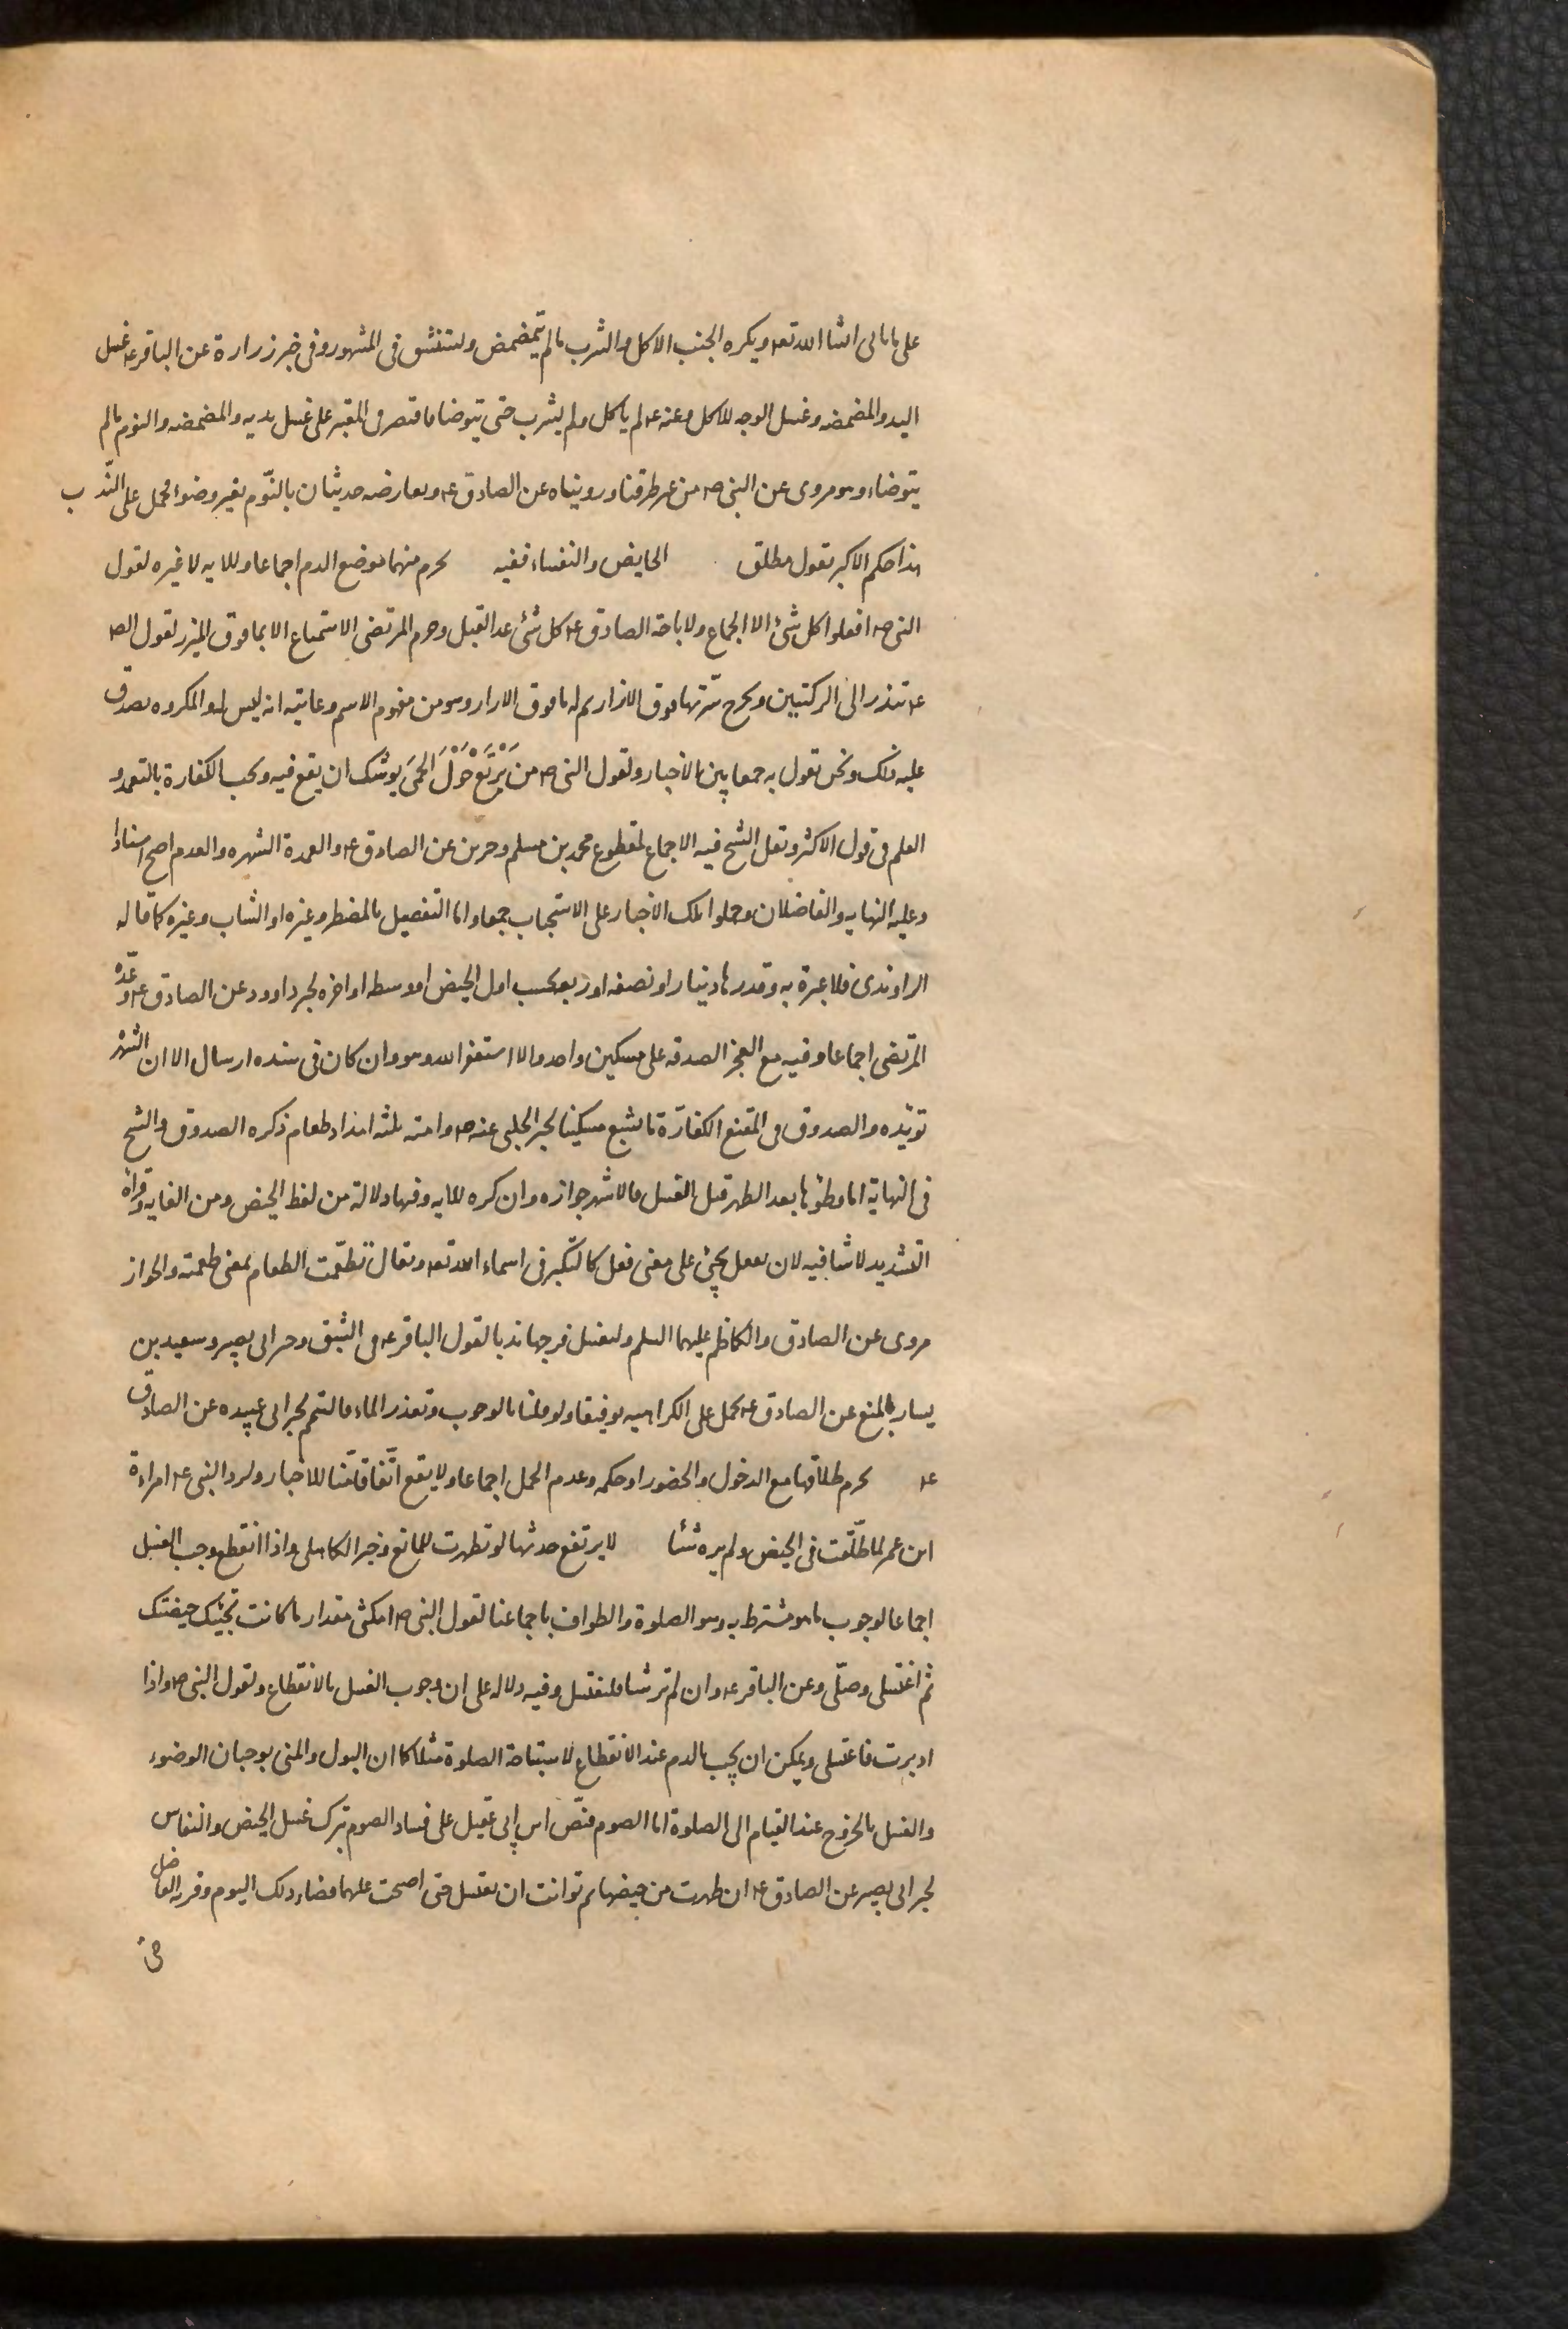 على ما ياتى انشا الله تعه ويكره الجنب الاكل والشرب مالم يتمضمض ويستنشق فى المشهور وفى خبر زرارة عن الباقر عه غسل
اليد والمضمضه وغسل الوجه للاكل وعنه عه لم ياكل ولم يشرب حتى يتوضا واقتصر فى المعتبر على غسل يديه والمضمضه والنوم مالم
يتوضاء وهو مروى عن النبى صه من غير طرقنا ورويناه عن الصادق عه ويعارضه حديثان بالنّوم بغير وضوء محمل على النّدب
هذا حكم الاكبر بقول مطلق الحايض والنفساء ففيه يحرم منهما موضع الدم اجماعا وللايه لا غيره لقول
النبى صه افعلوا كل شئ الا الجماع ولاباحة الصادق عه كل شئ عدا القبل وحرم المرتضى الاستمتاع الا بما فوق الميزر لقول الصه
عه تتزر الى الركبتين وتخرج سّرتها فوق الازار ثم له ما فوق الازار وهو من مفهوم الاسم وغايته انه ليس له والمكروه يصدق
عليه ذلك ونحن نقول به جمعا بين الاخبار ولقول النبى صه من يَرْتَعْ حَوْلَ الحمَى يوشك ان يقع فيه وتجب الكفارة بالتعمد و
العلم فى قول الاكثر ونقل الشيخ فيه الاجماع لمقطوع محمد بن مسلم وخبرين عن الصادق عه والعمدة الشهره والعدم اصح اسنادا
وعليه النهايه والفاضلان وحملوا تلك الاخبار على الاستحباب جمعا واما التفصيل بالمضطر وغيره او الشاب وغيره كما قاله
الراوندى فلا عبرة به وقدرها دينار او نصفه او ربعه بحسب اول الحيض او وسطه او اخره لخبر داوود عن الصادق عه وعدّه
المرتضى اجماعا وفيه مع العجز الصدقه على مسكين واحد والا استغفر الله وهو وان كان فى سنده ارسال الا ان الشهره
تويّده والصدوق فى المقنع الكفارّة ما يشبع مسكينا لخبر الحلبى عنه صه وامته بثلثه امداد طعام ذكره الصدوق والشيخ
فى النهاية اما وطؤها بعد الطهر قبل الغسل فالاشهر جوازه وان كره للايه وفيها دلالة من لفظ الحيض ومن الغايه وقراءة
التشديد لا تنافيه لان تفعل يجئ على معنى فعل كالتكبر فى اسماء الله تعه ويقال تطعّمت الطعام بمعنى طعمته والجواز
مروى عن الصادق والكاظم عليهما السلم وليغسل فرجها ندبا لقول الباقر عه فى الشبق وخبر ابى بصير وسعيد بن
يسار بالمنع عن الصادق عه يحمل على الكراهيه توفيقا ولو قلنا بالوجوب وتعذر الماء فالتيمم لخبر ابى عبيده عن الصادق
عه يحرم طلاقها مع الدخول والحضور او حكمه وعدم الحمل اجماعا ولا يقع اتّفاقا منّا للاخبار ولرد النبى عه امراءة
ابن عمر لما طلّقت فى الحيض ولم يره شئا لا يرتفع حدثها لو تطهرت للمانع وخبر الكاهلى واذا انقطع وجب الغسل
اجماعا لوجوب ما هو مشترط به وهو الصلوة والطواف باجماعنا لقول النبى صه امكثى مقدار ما كانت تجئك حيضتك
ثم اغتسلى وصلّى وعن الباقر عه وان لم تر شئا فلتغتسل وفيه دلاله على ان وجوب الغسل بالانقطاع ولقول النبى صه واذا
ادبرت فاغتسلى ويمكن ان يجب بالدم عند الانقطاع لاستباحة الصلوة مثلا كما ان البول والمنى يوجبان الوضوء
والغسل بالخروج عند القيام الى الصلوة اما الصوم فنصّ ابن ابى عقيل على فساد الصوم بترك غسل الحيض والنفاس
لخبر ابى بصير عن الصادق عه ان طهرت من حيضها ثم توانت ان تغتسل حتى اصبحت عليها قضاء ذلك اليوم وقربه الفاضل
فى